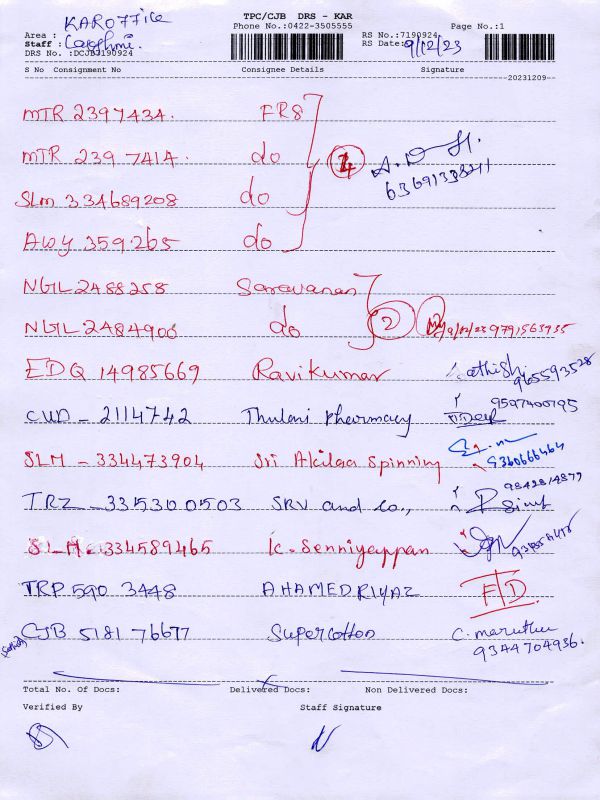 KAR OFFICE
TPC/CJB DRS - KAR
Page No.:1
Area :
Phone No.:0422-3505555
RS No.:7190924
Staff :
RS Date: 9/12/23
DRS No. :DCJB7190924
S No Consignment No Consignee Details Signature
20231209
MTR 2397434. FRS
MTR 2397414. do
4
SLM 334689208 do
AWY 359265 do
NGL 2488258 Saravanan
NGL 2484900 do 2 9/12/23 9791563935
EDQ 14985669 Ravikumar
CUD - 2114742 Thulasi Pharmacy 9597400195
SLM - 334473904 Sri Akilaa Spinning 9360666464
TRZ - 3315300503 SRV and Co., 9842814877
SLM - 334589465 K. Senniyappan
TRP 590 3448 AHAMED RIYAZ FTD
CJB 5181 76677 Supercotton
9344704936.
Total No. Of Docs: Delivered Docs: Non Delivered Docs:
Verified By Staff Signature